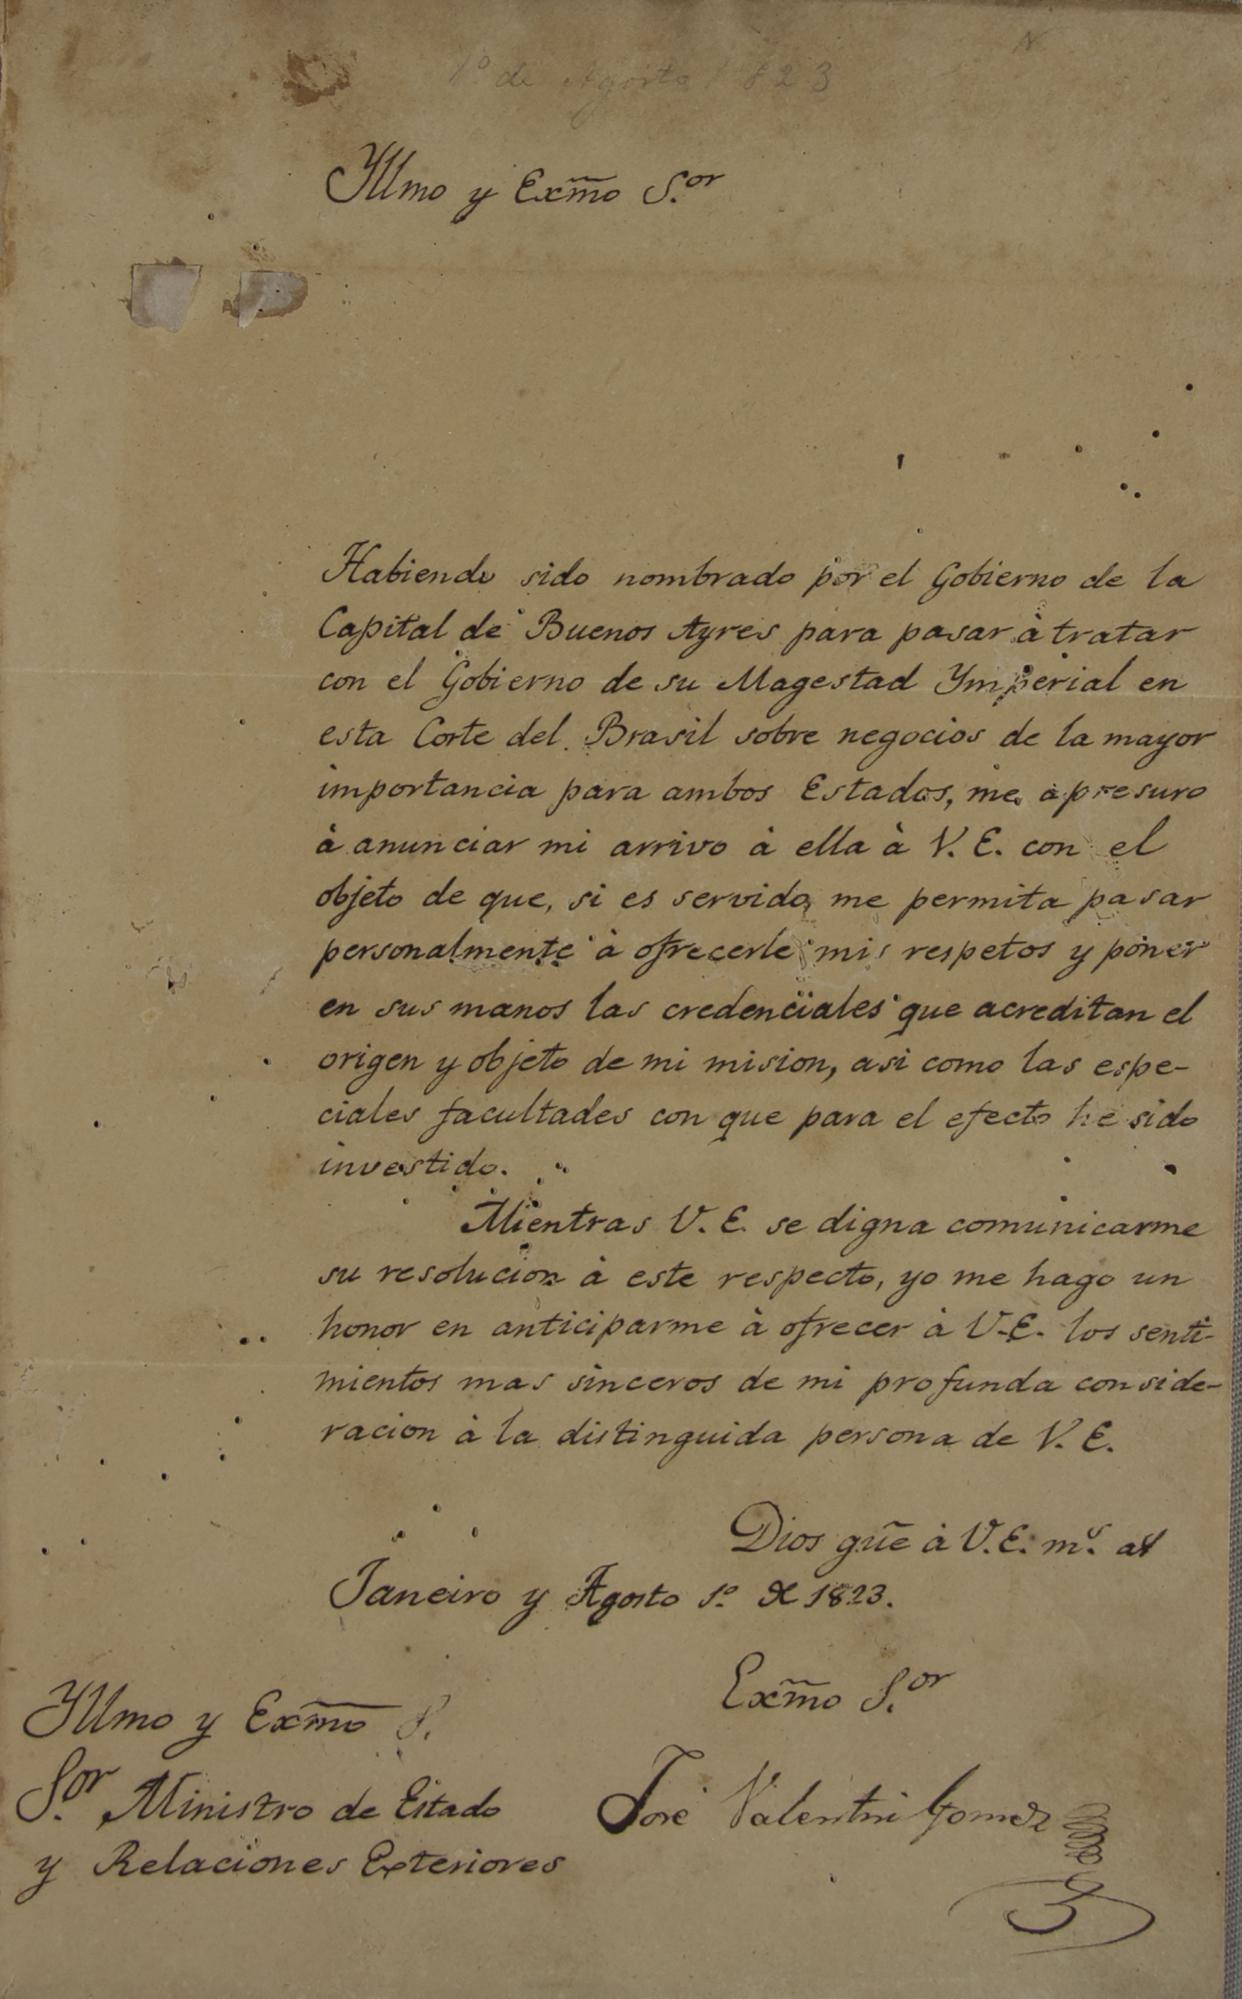 1º de Agosto 1823
Yllmo y Exm̃o S.or
Habiendo sido nombrado por el Gobierno de la
Capital de Buenos Ayres para pasar à tratar
con el Gobierno de su Magestad Ymperial en
esta Corte del Brasil sobre negocios de la mayor
importancia para ambos Estados, me apresuro
à anunciar mi arrivo à ella à V. E. con el
objeto de que, si es servido, me permita pasar
personalmente à ofrecerle mis respetos y poner
en sus manos las credenciales que acreditan el
origen y objeto de mi mision, asi como las espe-
ciales facultades con que para el efecto he sido
investido.
Mientras V. E. se digna comunicarme
su resolucion à este respecto, yo me hago un
honor en anticiparme à ofrecer à V. E. los senti-
mientos mas sinceros de mi profunda conside-
racion à la distinguida persona de V. E.
Dios gũe à V. E. m.s as
Janeiro y Agosto 1.º de 1823.
Exm̃o S.or
Yllmo y Exm̃o S.
S.or Ministro de Estado
y Relaciones Exteriores
José Valentin Gomez